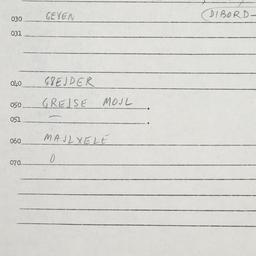 030 GEVEN (DIBORD-
031
040 GREJDER
050 GREJSE MOJL .
051 — .
060 MAJLXELE
070 0